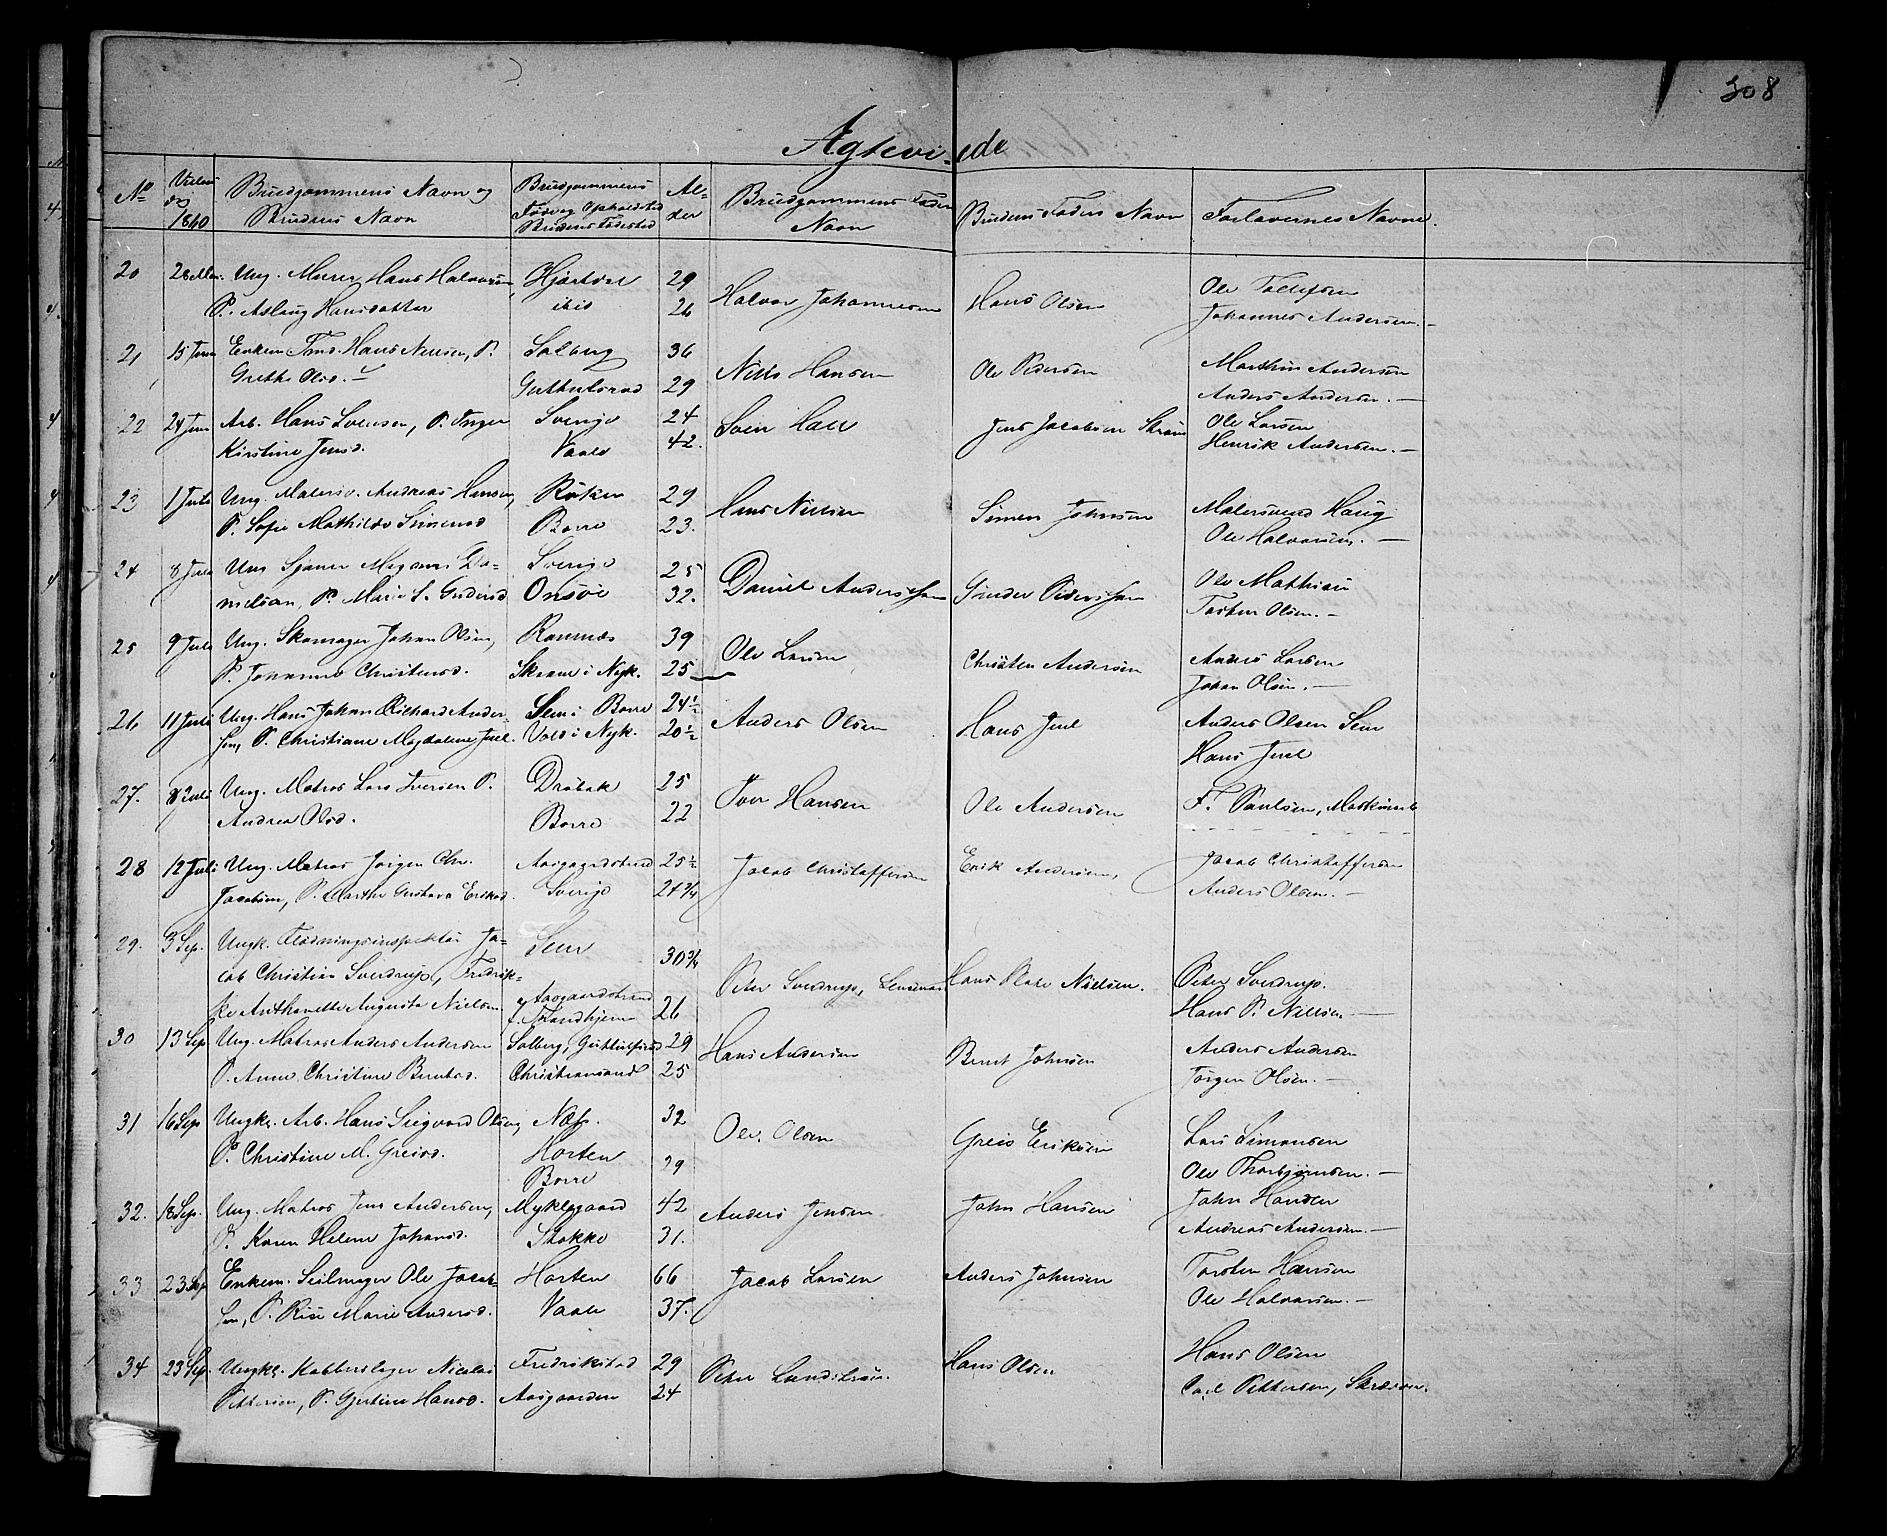 308
Ægteviede
No Vielses Dag 1860 Brudgommens Navn og Brudens Navn Brudgommens Fødested Opholdsted Brudens Fødested Alder Brudgommens Faders Navn Brudens Faders Navn Forlovernes Navne
20 28 Ung. Murer Hans Halvorsen, Hjartdal 29 Halvor Johannesen Hans Olsen Ole
P. Aslaug Hansdatter ibid 26 Johannes Andersen.—
21 15 Juni Enkem. Hans Nielsen, P. Solberg 36 Niels Hansen Ole Pedersen Marthin Andersen
Grethe Olsd. 29 Anders Andersen.—
22 24 Juni Arb. Hans Svensen, P. Inger Sverige 24 Svein Hall Jens Jacobsen Ole Larsen
Kirstine Jensd. Vaale 42. Henrik Andersen.—
23 1 Juli Ung. Malersv. Andreas Hansen, Røken 29 Hans Nielsen Simen Johnsen Malersvend Haug
P. Sofie Mathilde Simensd Borre 23. Ole Halvorsen.—
24 8 Juli Ung Magnus Da- Sverige 25 Daniel Anderssen Gunder Pederssen Ole Mathisen
nielsen, P. Marie S. Gundersd Onsøe 32. Torsten Olsen.—
25 9 Juli Ung. Skomager Johan Olsen, Ramnæs 39 Ole Larsen Christen Andersen Anders Larsen
P. Johanne Christensd. i Nyk. 25 Johan Olsen.—
26 11 Juli Ung. Hans Johan Richard Ander- Sem i Borre 24½ Anders Olsen Hans Juel Anders Olsen Sem
sen, P. Christiane Magdalene Juel. Vold i Nyk. 20½ Hans Juel
27. 8 Juli Ung. Matros Lars Iversen P. Drøbak 25 Iver Hansen Ole Andersen F. Paulsen,
Andrea Olsd. Borre 22
28 12 Juli Ung. Matros Jørgen Chr. Aasgaardstrand 25½ Jacob Christoffersen Erik Andersen, Jacob Christoffersen
Jacobsen, P. Marthe Gustava Eriksd. Sverige 24¾ Anders Olsen.—
29. 3 Sep. Ungk. Fløtningsinspektør Ja- Sem 30¾ Peter Sverdrup, Lensmand Hans Plade Nielsen. Peter Sverdrup.
cob Christian Sverdrup, Fredrik-
ke Anthonette Augusta Nielsen Aasgaardstrand
f. Trondhjem 26 Hans P. Nielsen—
30 13 Sep Ung. Matros Anders Andersen Solberg, 29 Hans Andersen Bernt Johnsen Anders Andersen
P. Anne Christine Berntsd. Christianssand 25 Jørgen Olsen.—
31 16 Sep Ungk. Arb. Hans Siegvard Olsen, Næs. 32 Ole Olsen Greis Eriksen Lars Simonsen
P. Christine M. Greisd. Horten 29 Ole Thorbjørnsen.—
Borre
32. 18 Sep. Ung. Matros Jens Andersen, Myklegaard 42 Anders Jensen John Hansen John Hansen
P. Karen Helene Johansd. Stokke 31. Andreas Andersen—
33 23 Sep Enkem. Seilmager Ole Jacob- Horten 66 Jacob Larsen Anders Johnsen Torsten Hansen
sen, P. Marie Andersd. Vaale 37. Ole Halvorsen.—
34 23 Sep. Ungk. Kobberslager Nicolai Fredrikstad 29 Peter Lundstrøm. Hans Olsen Hans Olsen
Pettersen, P. Gjertine Hansd. Aasgaarden 24 Carl Pettersen,